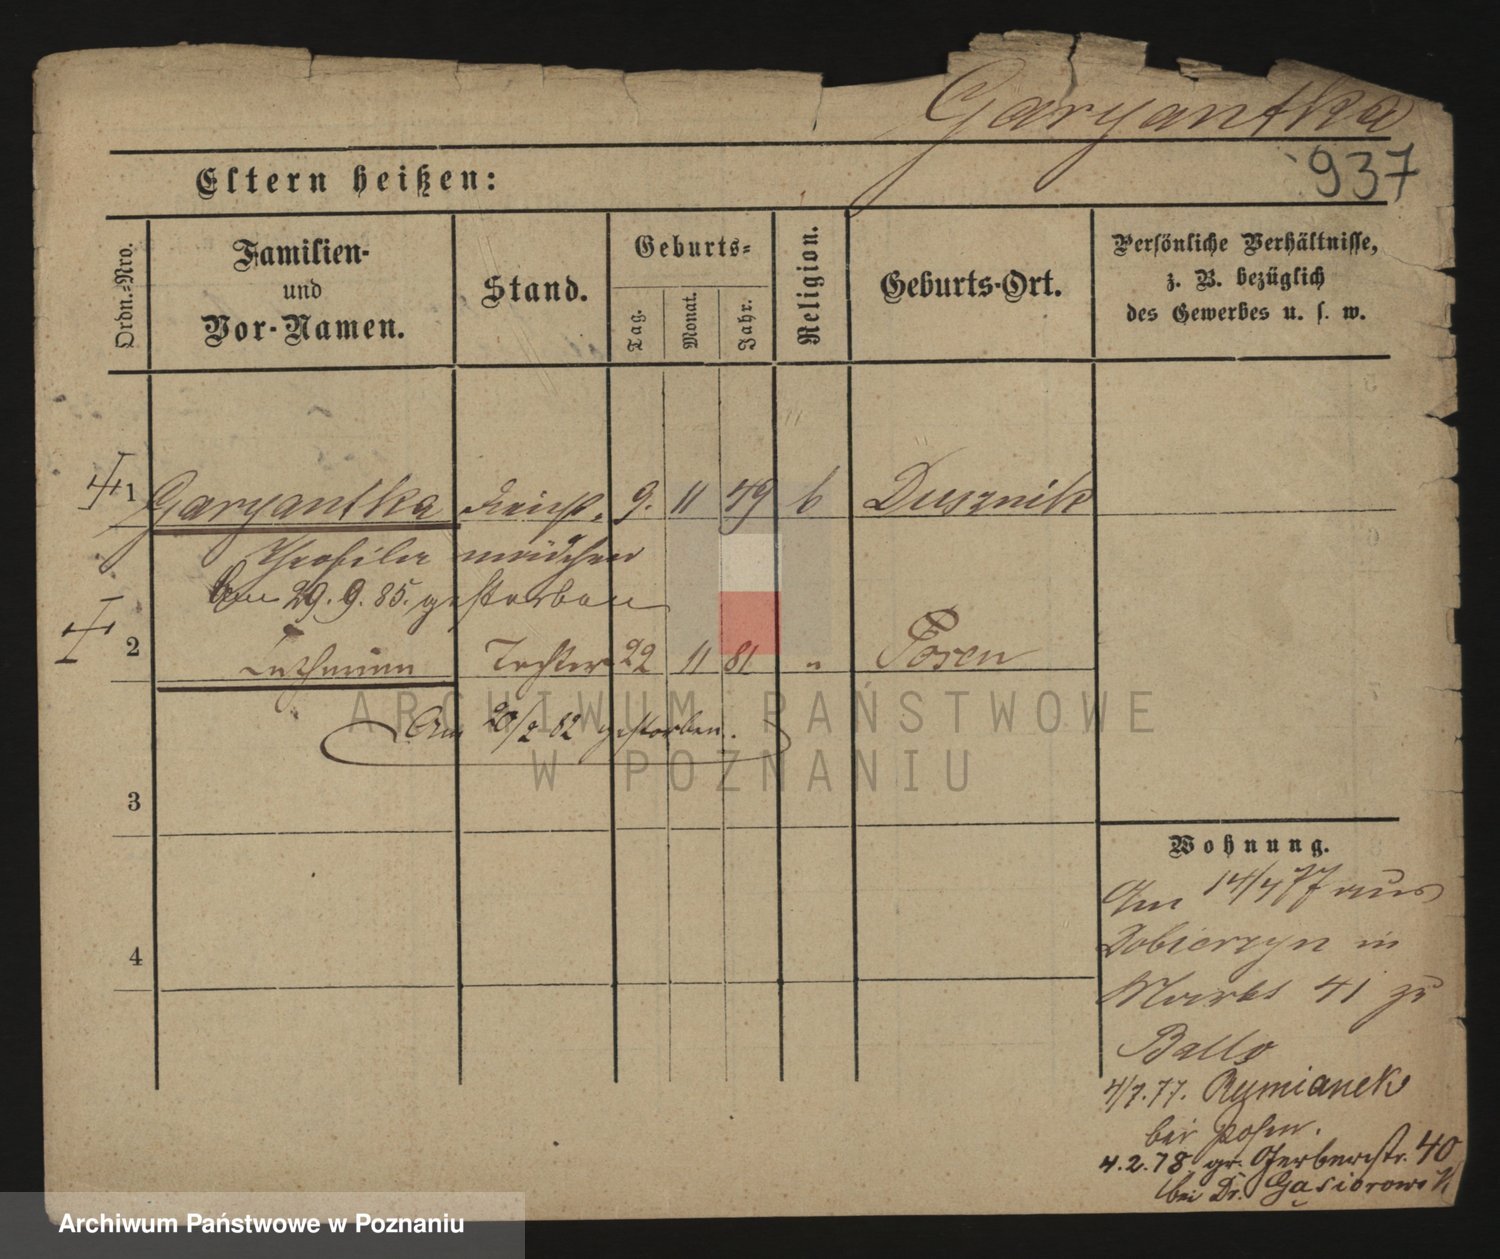 Garyantka
937
Eltern heißen:
Ordn.-Nro.
Familien-
und
Vor-Namen.
Stand.
Geburts-
Tag.
Monat.
Jahr.
Religion.
Geburts-Ort.
Persönliche Verhältnisse,
z. B. bezüglich
des Gewerbes u. s. w.
1 Garyantka 9. 11 49 Dusznik
mädchen
Am 29. 9. 85. gestorben
2 Tochter 22 11 81 " Posen
Am 20/2 82 gestorben.
3
4
Wohnung.
Am 14/4 77 aus
Dobierzyn in
Markt 41 zu
Ballo
4/7. 77. Rymianek
bei Posen.
4. 2. 78 gr. Gerberstr. 40
bei Dr. Gąsiorowski
ARCHIWUM PAŃSTWOWE
W POZNANIU
Archiwum Państwowe w Poznaniu